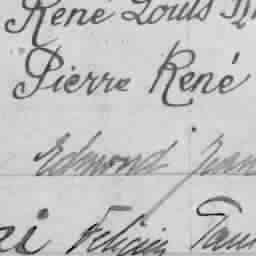 René Louis
Pierre René
Edmond Jean
Félicien